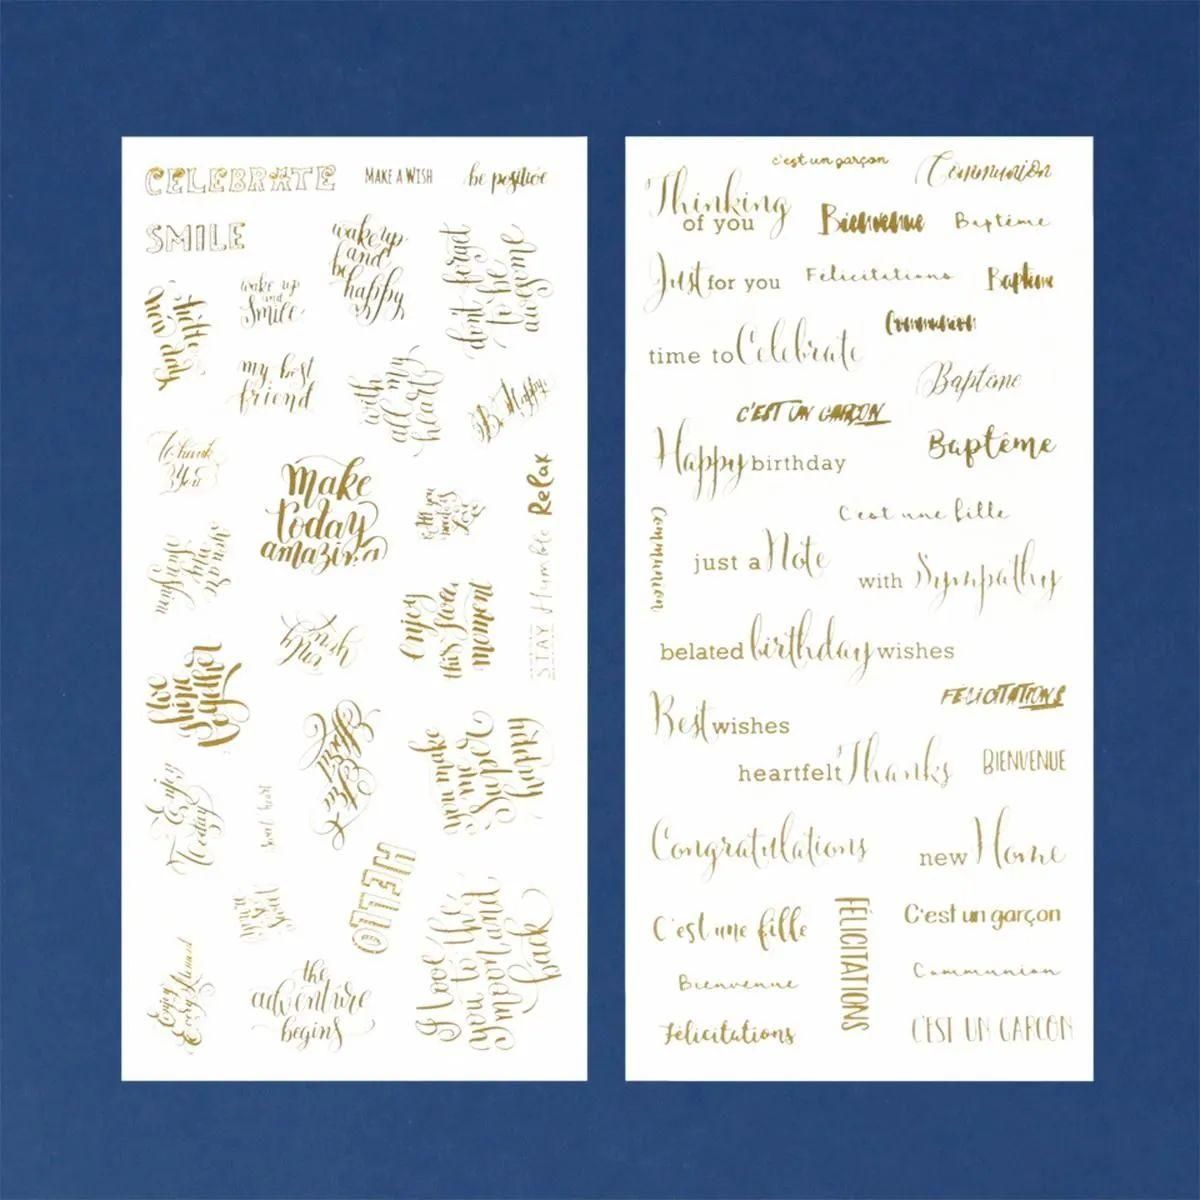 CELEBRATE
MAKE A WISH
be positive
SMILE
wake up
and
be
happy
don't forget
to be
awesome
wake up
and
Smile
my best
friend
with
all my
heart
Be Happy
Thank
You
make
today
amazing
all you
need is
Love
Relax
STAY Humble
you are
my
Sunshine
enjoy
this Sweet
moment
live
Shine
together
you make
me
Super
happy
Enjoy
Today
Sweet heart
HELLO
I love
you to the
moon and
back
Enjoy
Every Moment
the
adventure
begins
c'est un garçon
Communion
Thinking
of you
Bienvenue
Baptême
Just for you
Félicitations
Baptême
Communion
time to Celebrate
Baptême
C'EST UN GARÇON
Happy birthday
Baptême
C'est une fille
Communion
just a Note
with Sympathy
belated birthday wishes
FÉLICITATIONS
Best wishes
heartfelt Thanks
BIENVENUE
Congratulations
new Home
C'est une fille
FÉLICITATIONS
C'est un garçon
Bienvenue
Communion
Félicitations
C'EST UN GARÇON